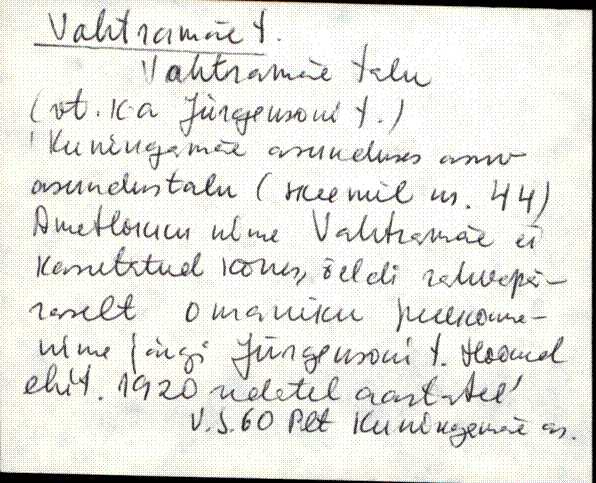 Vahtramäe t.
Vahtramäe talu
(vt. ka Jürgensoni t.)
'Kuningamäe asunduses asuv
asundustalu (skeemil nr. 44)
Ametlikku nime Vahtramäe ei
kasutatud kõnes, öeldi rahvapä-
raselt omaniku perekonna-
nime järgi Jürgensoni t. Hooned
ehit. 1920 ndatel aastatel'
V.S.60 Plt Kuningamäe as.